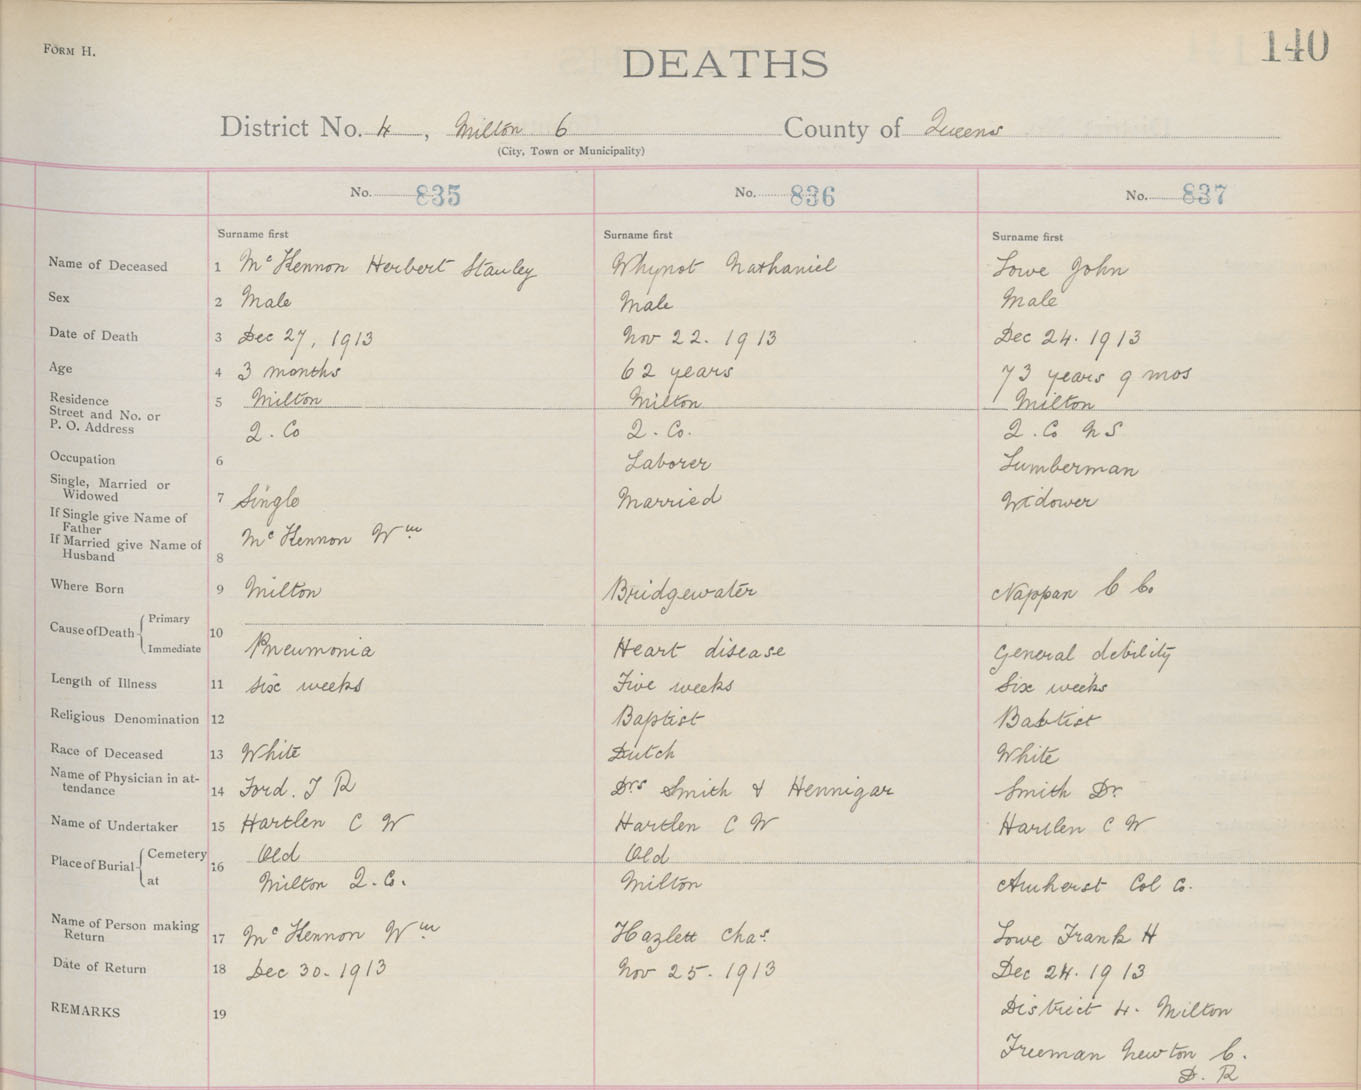 FORM H.
140
DEATHS
District No. 4, Milton 6 County of Queens
(City, Town or Municipality)
No. 835 No. 836 No. 837
Surname first Surname first Surname first
Name of Deceased 1 Mc Kennon Herbert Stanley Whynot Nathaniel Lowe John
Sex 2 Male Male Male
Date of Death 3 Dec 27, 1913 Nov 22. 1913 Dec 24. 1913
Age 4 3 months 62 years 73 years 9 mos
Residence 5 Milton Milton Milton
Street and No. or
P. O. Address Q. Co Q. Co. Q. Co N S
Occupation 6 Laborer Lumberman
Single, Married or
Widowed 7 Single Married Widower
If Single give Name of
Father
If Married give Name of
Husband 8 Mc Kennon Wm
Where Born 9 Milton Bridgewater Nappan C Co.
Cause of Death 10 Primary
Immediate Pneumonia Heart disease General debility
Length of Illness 11 six weeks Five weeks Six weeks
Religious Denomination 12 Baptist Babtist
Race of Deceased 13 White Dutch White
Name of Physician in at-
tendance 14 Ford. J R Drs Smith & Hennigar Smith Dr
Name of Undertaker 15 Hartlen C W Hartlen C W Hartlen C W
Place of Burial 16 Cemetery Old Old
at Milton Q. Co. Milton Amherst Col Co.
Name of Person making
Return 17 Mc Kennon Wm Hazlett Chas. Lowe Frank H
Date of Return 18 Dec 30. 1913 Nov 25. 1913 Dec 24. 1913
REMARKS 19 District 4. Milton
Freeman Newton C.
D. R